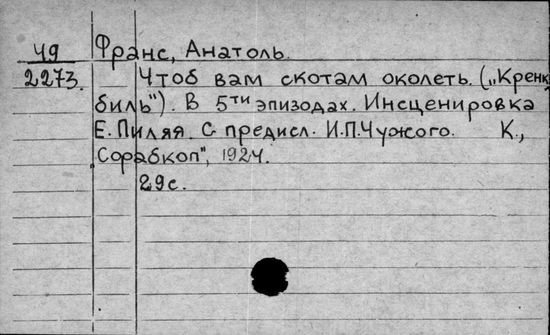 49 Франс, Анатоль.
2273. Чтоб вам скотам околеть. („Кренк-
биль"). В 5ти эпизодах. Инсценировка
Е. Пиляя. С предисл. И.П.Чужого. К.,
„Сорабкоп", 1924.
29с.